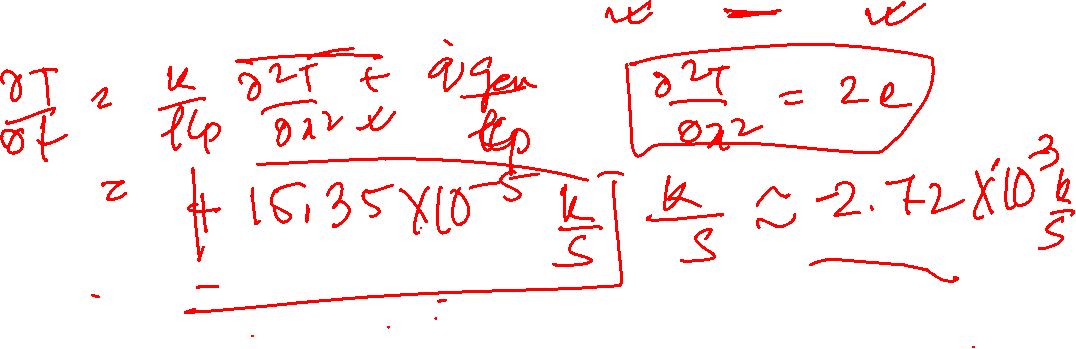 ∂T/∂t = k/ρcp ∂²T/∂x² + q̇gen/ρcp   ∂²T/∂x² = 2c
= + 15.35×10⁻⁵ k/s   k/s ≈ -2.72×10³ k/s